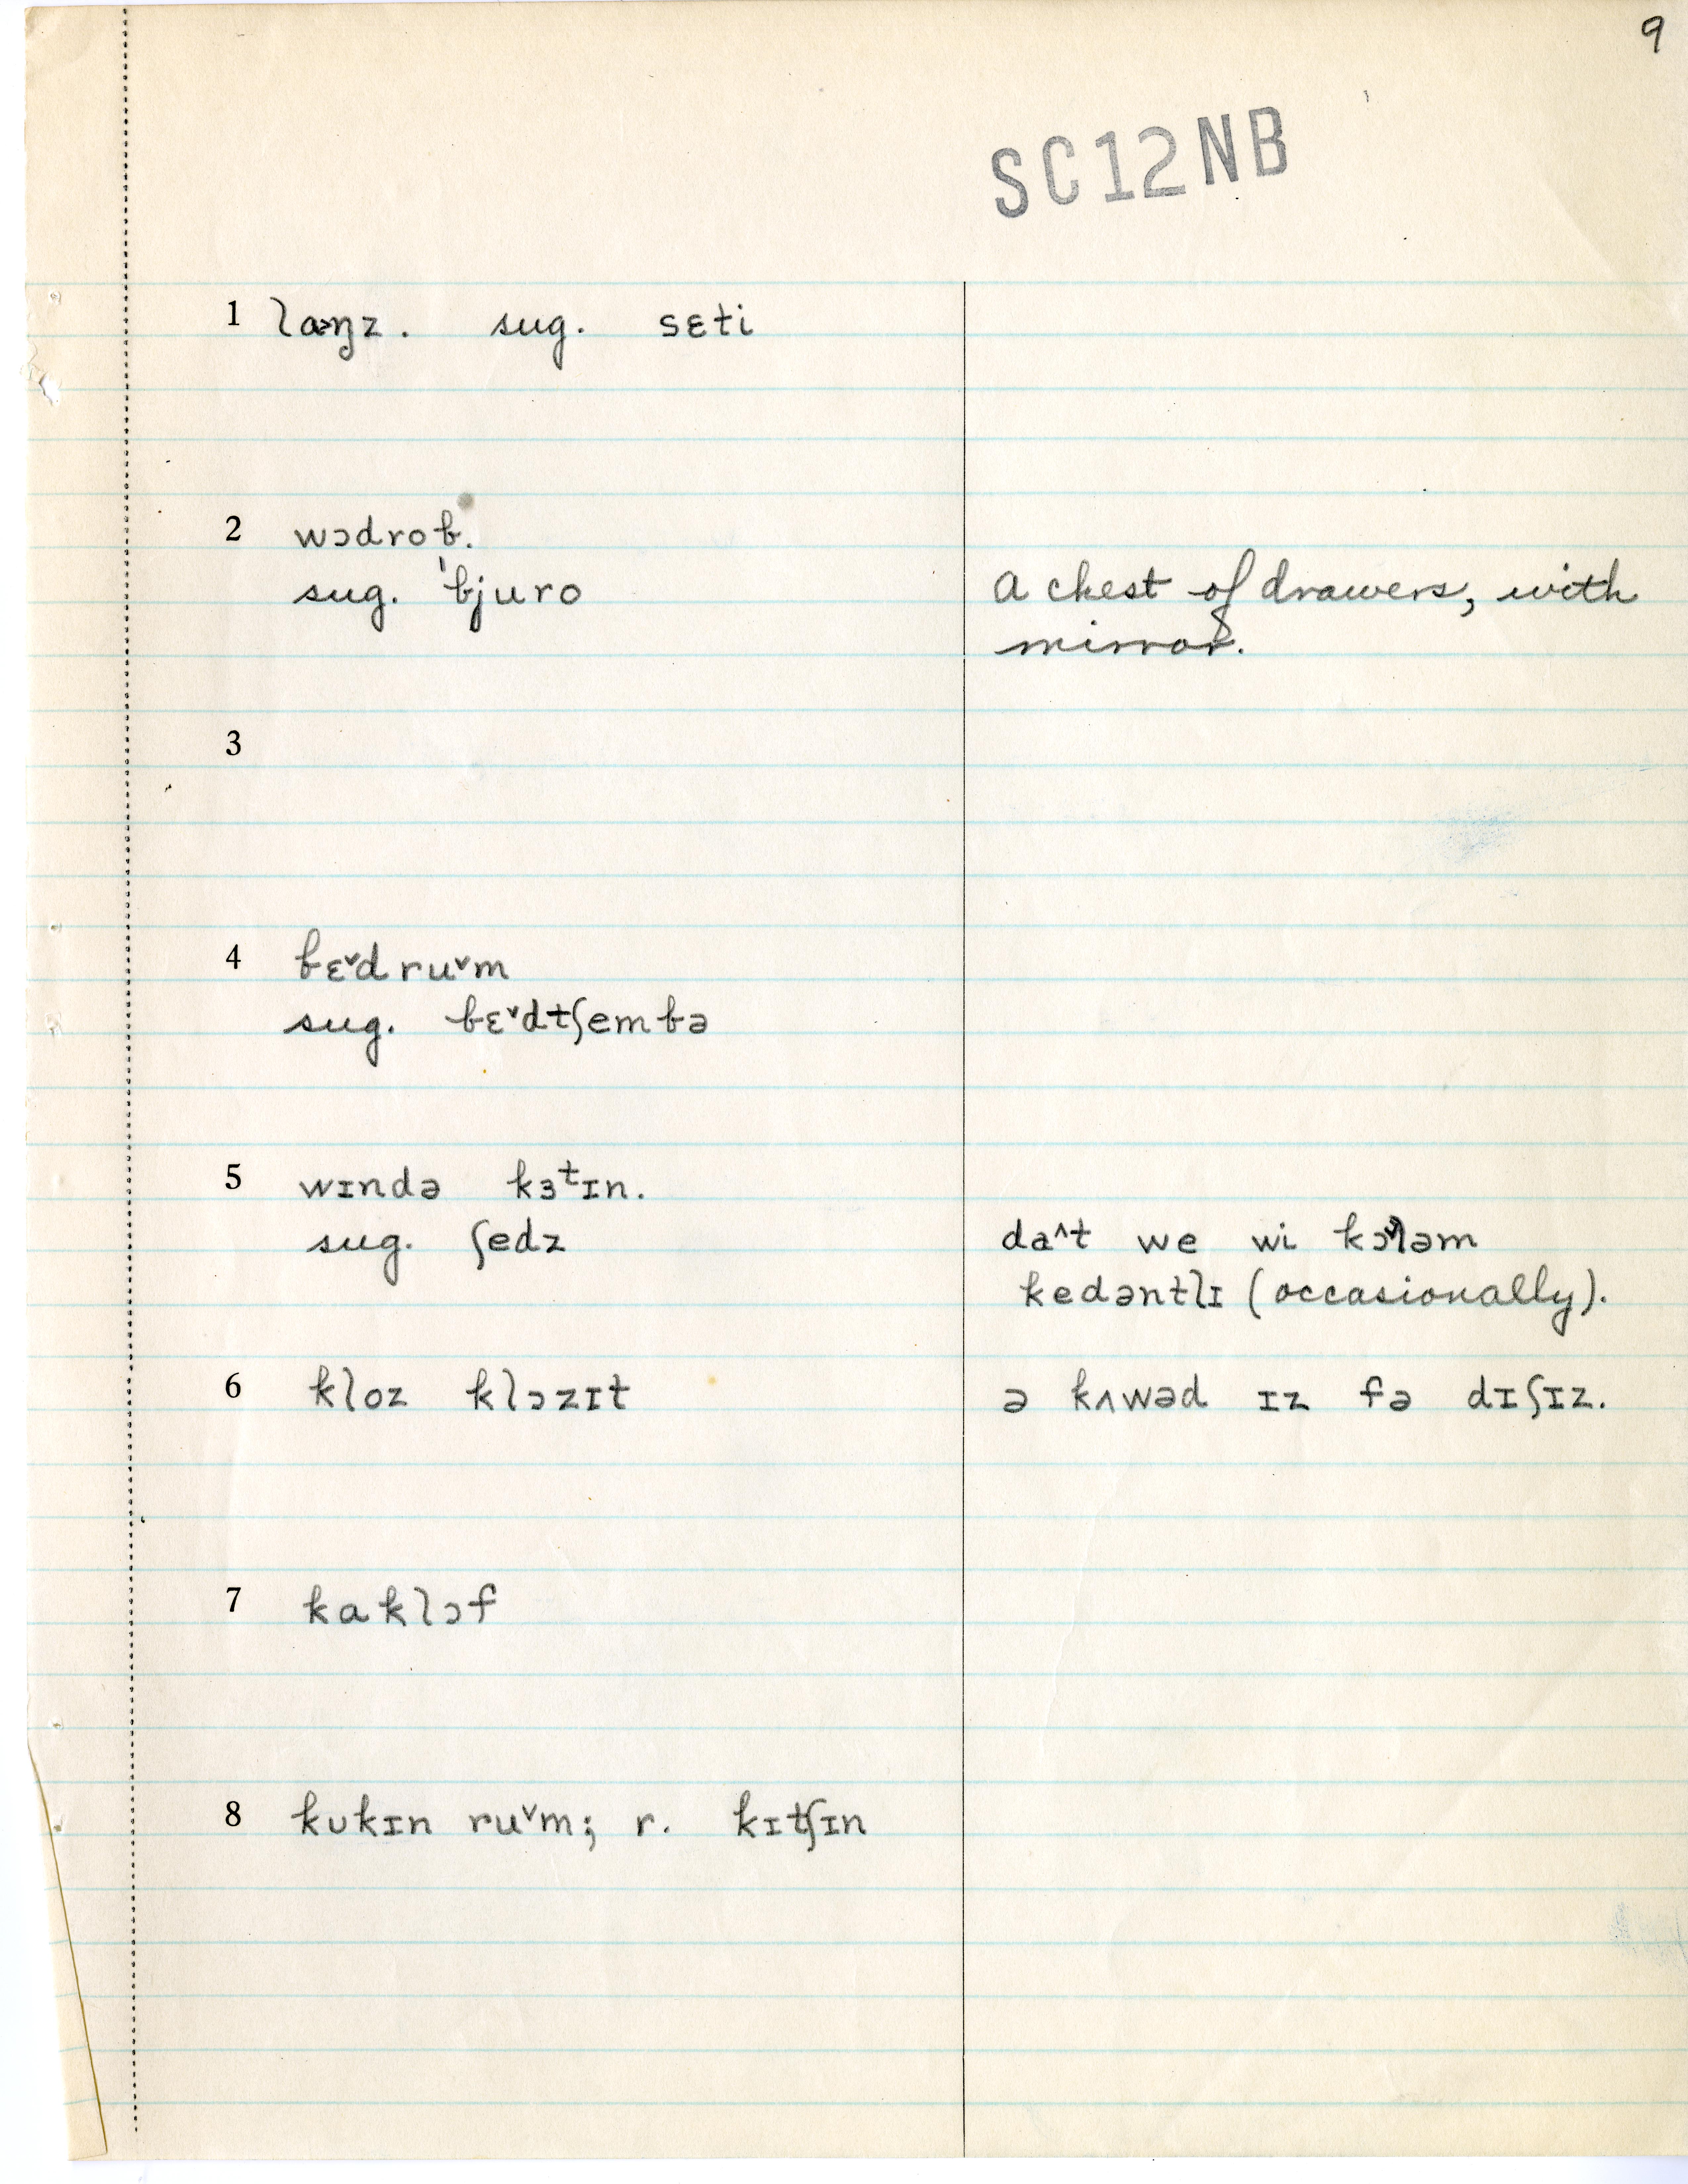 9
SC12NB
1 laʊŋz. sug. sɛti
2 wɔdrob.
sug. 'bjuro
a chest of drawers, with
mirror.
3
4 bɛ˅d ru˅m
sug. bɛ˅dtʃembə
5 wɪndə kɜtɪn.
sug. ʃedz
da^t we wi
kedəntlɪ (occasionally).
6 kloz klɔzɪt
ə kʌwəd ɪz fə dɪʃɪz.
7 kaklɔf
8 kʊkɪn ru˅m; r. kɪtʃɪn